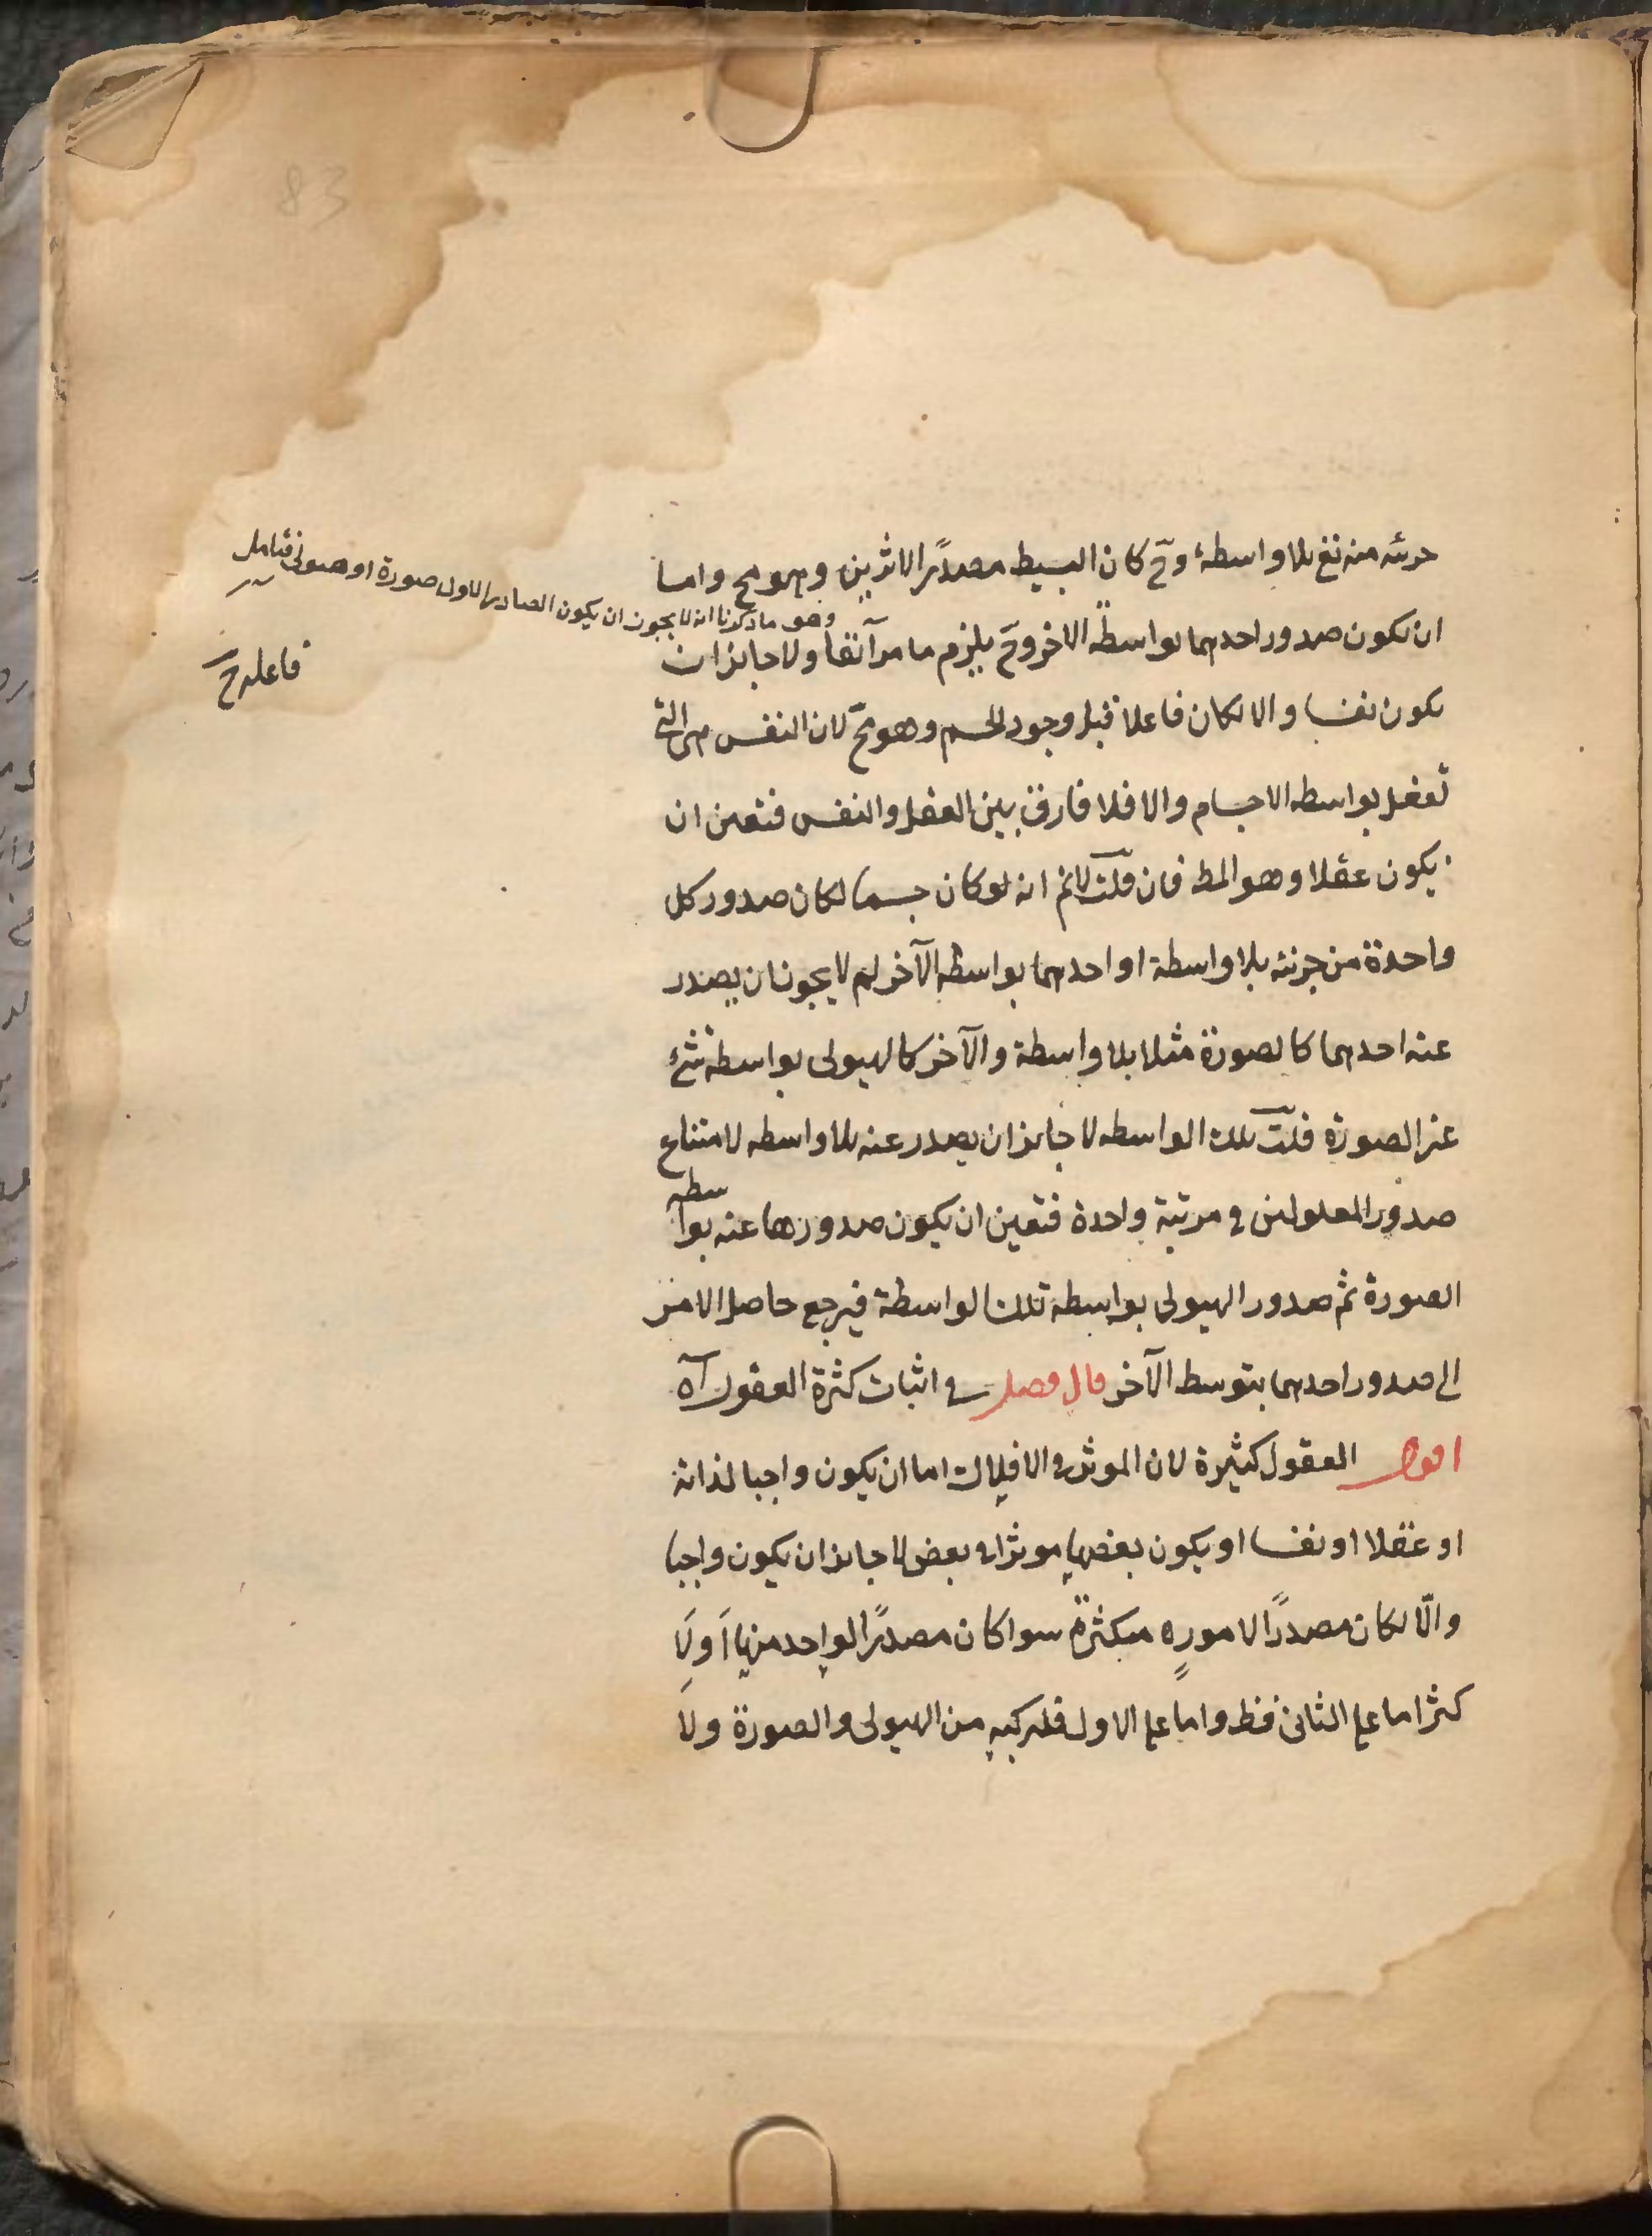 جزئه منه تع بلا واسطة وح كان البسيط مصدرًا لاثرين وهو مح واما
ان يكون صدور احدهما بواسطة الاخر وح يلزم ما مر آنفا ولا جائز ان
يكون نفسا والا لكان فاعلا قبل وجود الجسم وهو مح لان النفس هى التى
تفعل بواسطه الاجسام والا فلا فارق بين العقل والنفس فتعين ان
يكون عقلا وهو المط فان قلت لانم انه لو كان جسما لكان صدور كل
واحدة من جزئه بلا واسطة او احدهما بواسطه الآخر لم لا يجوز ان يصدر
عنه احدهما كالصورة مثلا بلا واسطة والآخر كالهيولى بواسطه شئ
غير الصورة قلت تلك الواسطه لا جائز ان يصدر عنه بلا واسطه لامتناع
صدور المعلولين فى مرتبة واحدة فتعين ان يكون صدورها عنه بواسطه
الصورة ثم صدور الهيولى بواسطه تلك الواسطة فيرجع حاصل الامر
الى صدور احدهما بتوسط الآخر قال فصل فى اثبات كثرة العقول آه
اقول العقول كثيرة لان الموثر فى الافلاك اما ان يكون واجبا لذاته
او عقلا او نفسا او يكون بعضها موثرا فى بعض لا جائز ان يكون واجبا
والّا لكان مصدرًا لامور متكثرة سوا كان مصدرًا لواحد منها اَولا
كثر اما على الثانى فظ واما على الاول فلتركبه من الهيولى والصورة ولا
وهو ما ذكرنا انه لا يجوز ان يكون الصادر الاول صورة او هيولى فتامل
فاعله ح